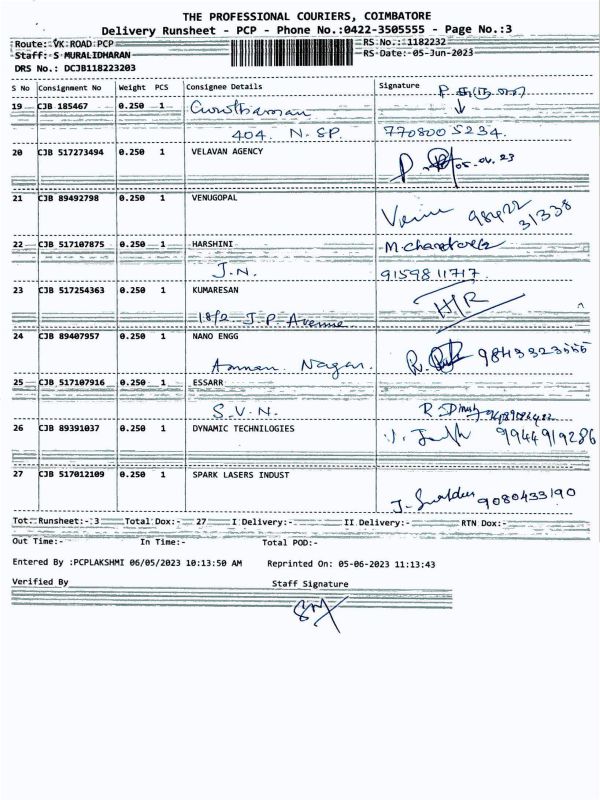 THE PROFESSIONAL COURIERS, COIMBATORE
Delivery Runsheet - PCP - Phone No.:0422-3505555 - Page No.:3
Route: VK ROAD PCP RS No.: 1182232
Staff: S MURALIDHARAN RS Date: 05-Jun-2023
DRS No.: DCJB118223203
S No Consignment No Weight PCS Consignee Details Signature
19 CJB 185467 0.250 1
404. N. SP. 7708005234.
20 CJB 517273494 0.250 1 VELAVAN AGENCY
21 CJB 89492798 0.250 1 VENUGOPAL
98422
31338
22 CJB 517107875 0.250 1 HARSHINI
J.N. 9159811717.
23 CJB 517254363 0.250 1 KUMARESAN H/R
18/2 J.P. Avenue
24 CJB 89407957 0.250 1 NANO ENGG
Amman Nagar. 9843323555
25 CJB 517107916 0.250 1 ESSARR
S.V.N.
26 CJB 89391037 0.250 1 DYNAMIC TECHNILOGIES 9944919286
27 CJB 517012109 0.250 1 SPARK LASERS INDUST
9080433190
Tot. Runsheet:- 3 Total Dox:- 27 I Delivery:- II Delivery:- RTN Dox:-
Out Time:- In Time:- Total POD:-
Entered By :PCPLAKSHMI 06/05/2023 10:13:50 AM Reprinted On: 05-06-2023 11:13:43
Verified By Staff Signature